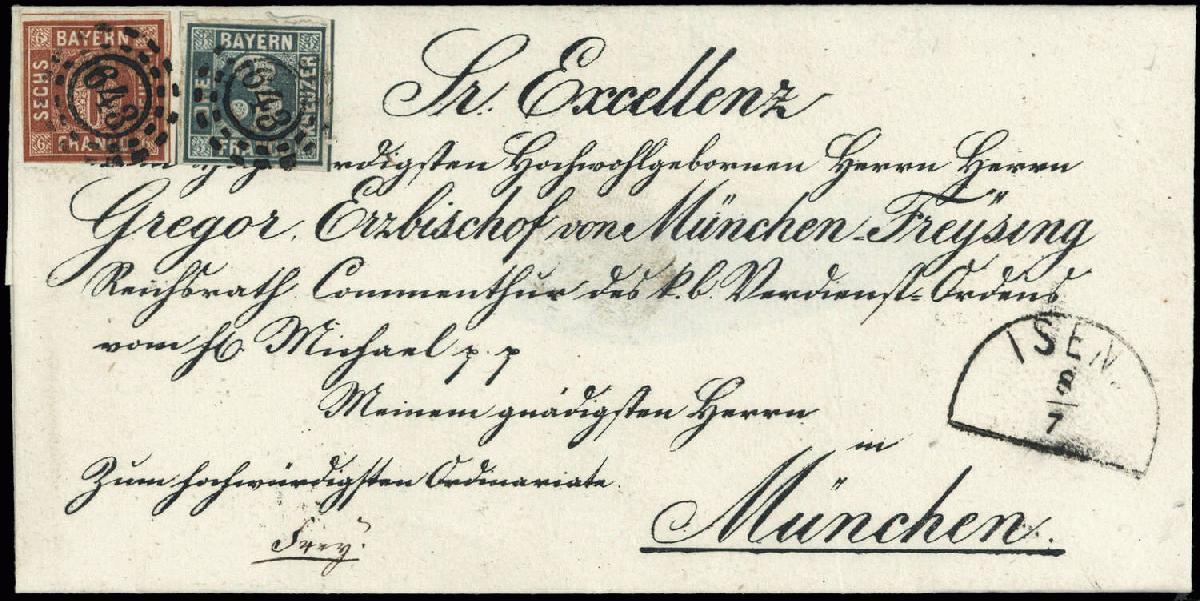 BAYERN
SECHS
FRANCO
643
BAYERN
DREI KREUZER
FRANCO
643
Sr. Excellenz
Hochwohlgebornen Herrn Herrn
Gregor, Erzbischof von München-Freÿsing
Reichsrath Commenthur des k. b. Verdienst-Ordens
vom hl. Michael p. p
Meinem gnädigsten Herrn
in
Zum hochwürdigsten Ordinariate.
München.
Freÿ.
ISEN.
8
7